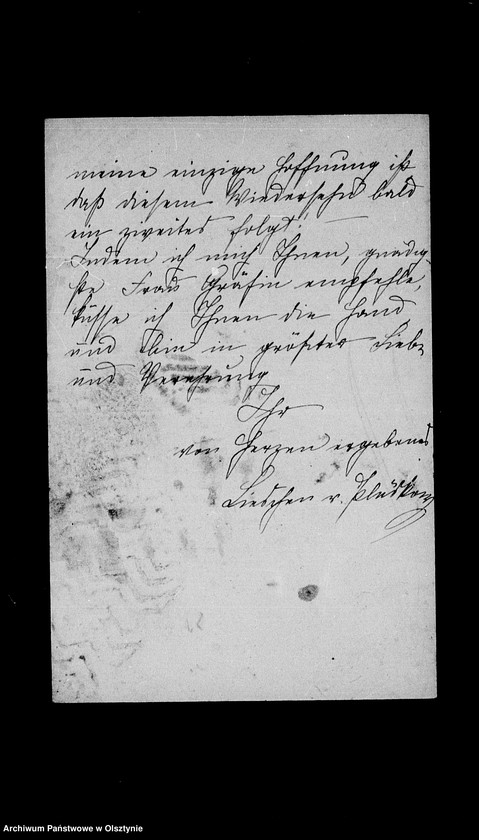 meine einzige Hoffnung ist
daß diesem Wiedersehn bald
ein zweites folgt! —
Indem ich mich Ihnen, gnädig
ste Frau Gräfin empfehle,
küsse ich Ihnen die Hand
und bin in größter Liebe
und Verehrung
Ihr
von Herzen ergebenes
Lieschen v.
Archiwum Państwowe w Olsztynie